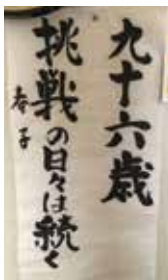 九十六歳
挑戦の日々は続く
春子